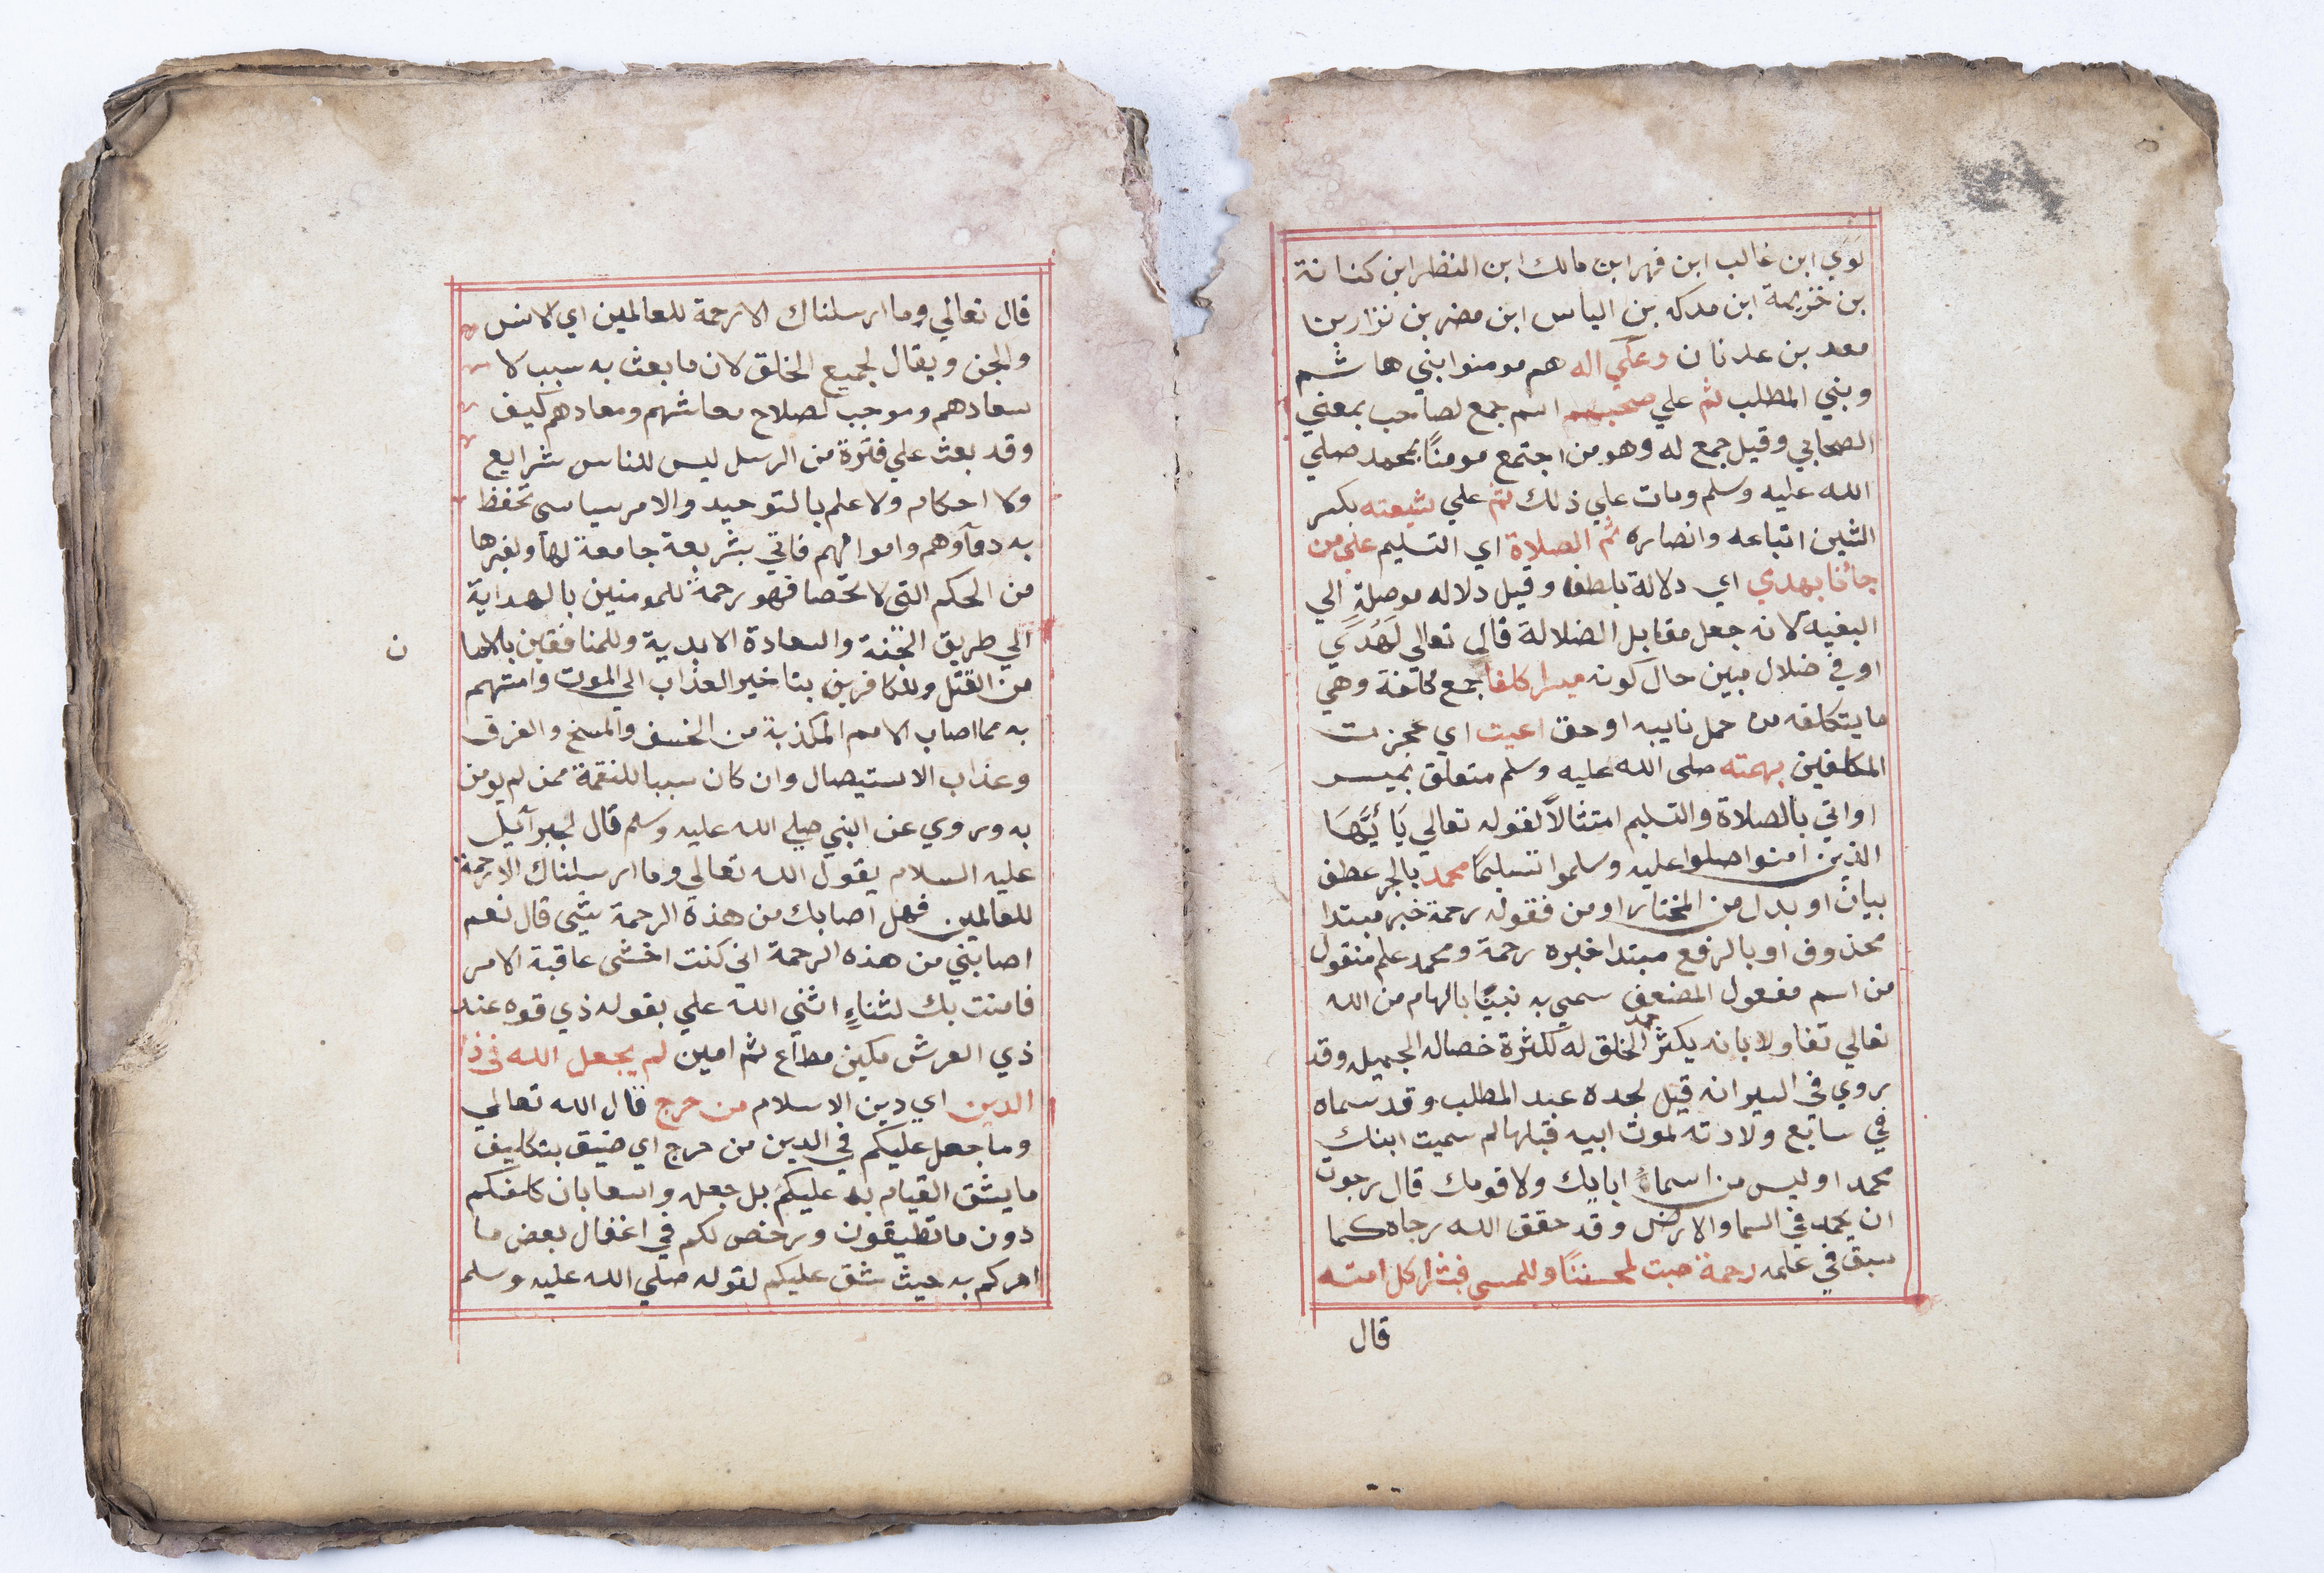 لوي ابن غالب ابن فهر ابن مالك ابن النظر ابن كنانة
بن خزيمة ابن مدركه بن الياس ابن مضر بن نزار بن
معد بن عدنان وعلي اله هم مومنوا بني هاشم
وبني المطلب ثم علي صحبه اسم جمع لصاحب بمعني
الصحابي وقيل جمع له وهو من اجتمع مومنًا بمحمد صلي
الله عليه وسلم ومات علي ذلك ثم علي شيعته بكسر
الشين اتباعه وانصاره ثم الصلاة اي التسليم علي من
جأنا بهدي اي دلالة بلطف وقيل دلاله موصلةٍ الي
البغيه لانه جعل مقابل الضلالة قال تعالى لَهُدًي
او في ضلال مبين حال كونه ميسرا كلفا جمع كلفة وهي
ما يتكلفه من حمل نايبه او حق اعيت اي عجزت
المكلفين بهمته صلى الله عليه وسلم متعلق بميسر
او اتي بالصلاة والتسليم امتثالًا لقوله تعالي يَا أيُّهَا
الذين امنوا صلوا عليه وسلموا تسليمًا محمد بالجر عطف
بيان او بدل من المختار او من فقوله رحمة خبر مبتدا
محذوف او بالرفع مبتدا خبره رحمة ومحمد علم منقول
من اسم مفعول المضعف سمي به نبينًا بالهام من الله
تعالي تفاولا بانه يكثر حمد الخلق له لكثرة خصاله الجميله وقد
روي في السير انه قيل لجده عبد المطلب وقد سماه
في سابع ولادته لموت ابيه قبلها لم سميت ابنك
محمد او ليس من اسماءً ابايك ولا قومك قال رجوت
ان يحمد في السما والارض وقد حقق الله رجاه كما
سبق في علمه رحمة حبت لمحسننًا وللمسي فبشرا كل امته
قال
قال تعالي وما ارسلناك الا رحمة للعالمين اي لانس
والجن ويقال لجميع الخلق لان ما بعث به سبب لا
سعادهم وموجب لصلاح معاشهم ومعادهم كيف
وقد بعث علي فترة من الرسل ليس للناس شرايع
ولا احكام ولا علم بالتوحيد والامر سياسي تحفظ
به دمآوهم واموالهم فاتي بشريعة جامعة لها ولغيرها
من الحكم التي لا تحصا فهو رحمة للمومنين بالهداية
الي طريق الجنة والسعادة الابدية وللمنافقين بالاما
ن
من القتل وللكافرين بتاخير العذاب الي الموت وامنهم
به مما اصاب الامم المكذبة من الخسف والمسخ والغرق
وعذاب الاستيصال وان كان سببا للنقمة ممن لم يومن
به وروي عن النبي صلي الله عليه وسلم قال لجبرآئيل
عليه السلام يقول الله تعالى وما ارسلناك الا رحمة
للعالمين فهل اصابك من هذة الرحمة شيى قال نعم
اصابني من هذه الرحمة اني كنت اخشى عاقبة الامر
فامنت بك لثناءٍ اثني الله علي بقوله ذي قوه عند
ذي العرش مكين مطاع ثم امين لم يجعل الله في ذا
الدين اي دين الاسلام من حرج قال الله تعالي
وما جعل عليكم في الدين من حرج اي ضيق بتكليف
ما يشق القيام به عليكم بل جعله واسعا بان كلفكم
دون ما تطيقون ورخص لكم في اغفال بعض ما
امركم به حيث شق عليكم لقوله صلي الله عليه وسلم